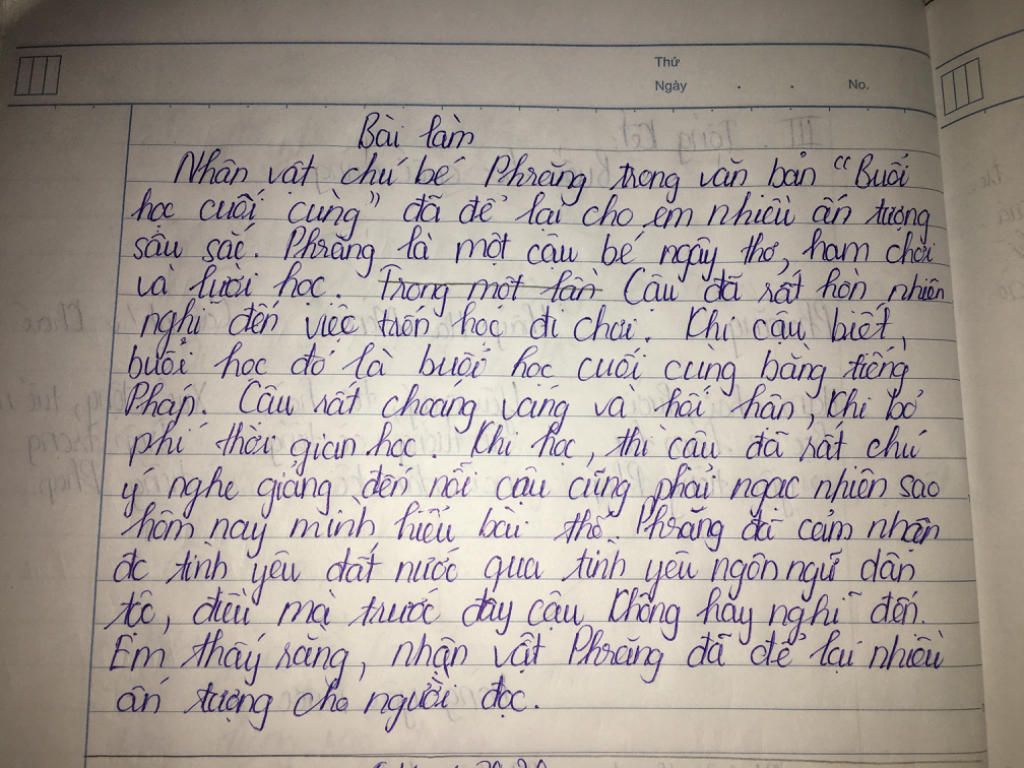 Thứ
Ngày . . No.
Bài làm
Nhân vật chú bé Phrăng trong văn bản "Buổi
học cuối cùng" đã để lại cho em nhiều ấn tượng
sâu sắc. Phrăng là một cậu bé ngây thơ, ham chơi
và lười học. Trong một lần Cậu đã rất hồn nhiên
nghĩ đến việc trốn học đi chơi. Khi cậu biết,
buổi học đó là buổi học cuối cùng bằng tiếng
Pháp. Cậu rất choáng váng và hối hận, khi bỏ
phí thời gian học. Khi học, thì cậu đã rất chú
ý nghe giảng, đến nỗi cậu cũng phải ngạc nhiên sao
hôm nay mình hiểu bài thế. Phrăng đã cảm nhận
đc tình yêu đất nước qua tình yêu ngôn ngữ dân
tộc, điều mà trước đây cậu không hay nghĩ đến.
Em thấy rằng, nhận vật Phrăng đã để lại nhiều
ấn tượng cho người đọc.